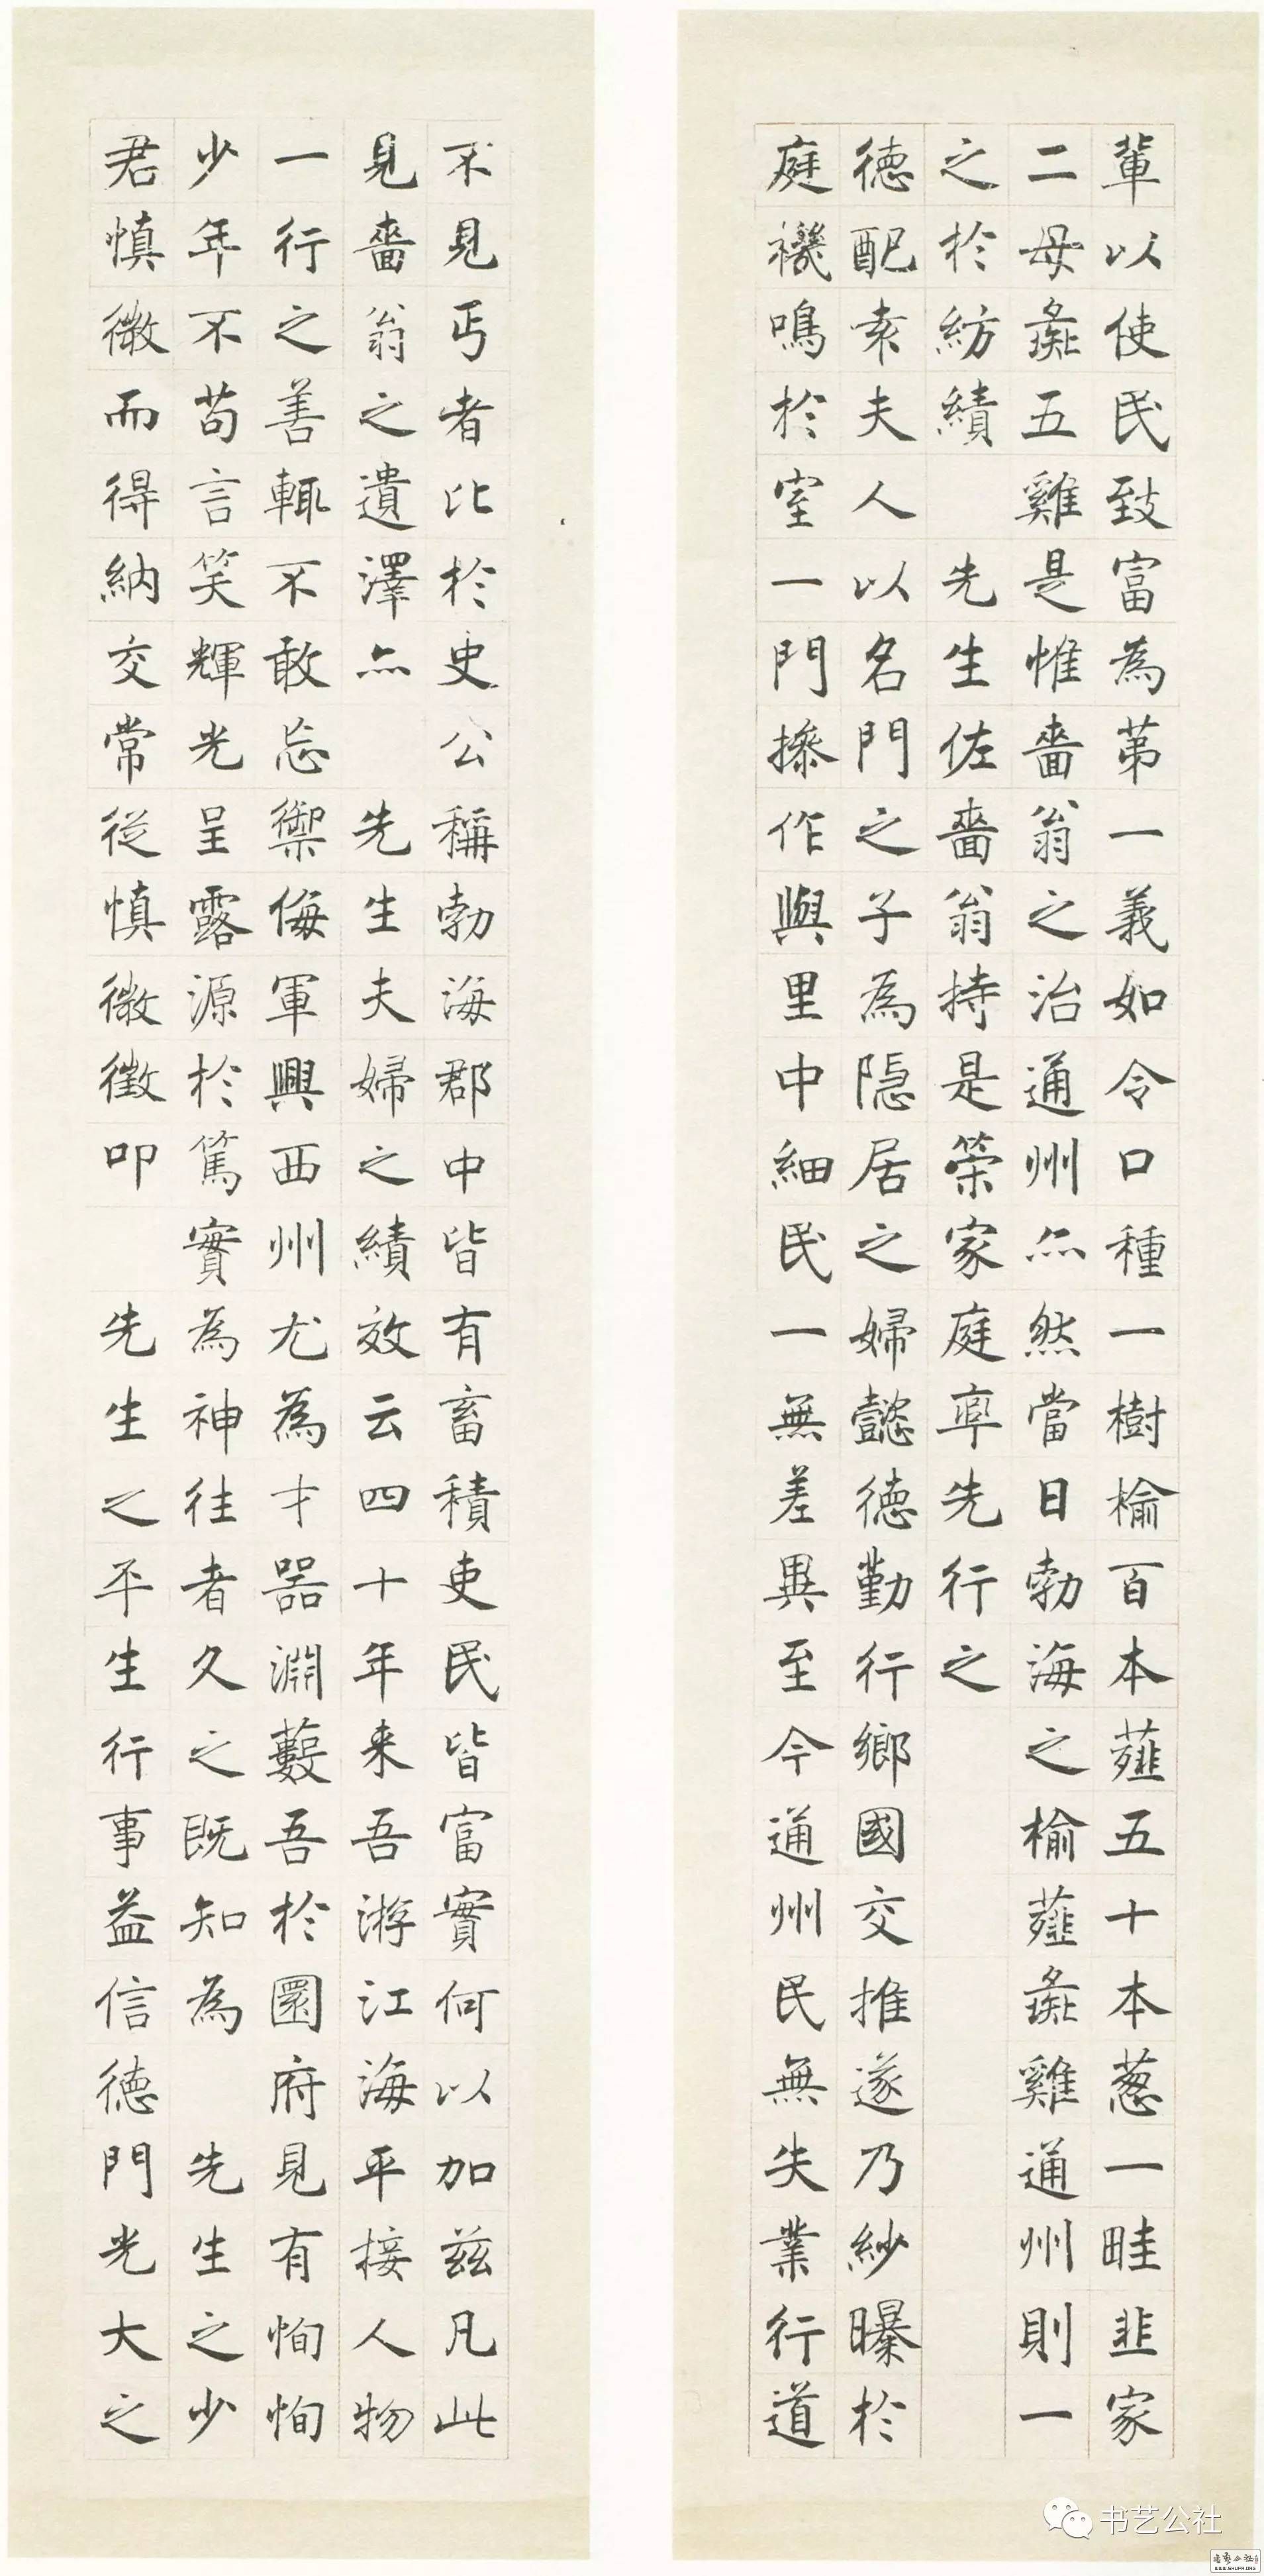 輩以使民致富為苐一義如令口種一樹榆百本薤五十本蔥一畦韭家
二母彘五雞是惟嗇翁之治通州亦然當日勃海之榆薤彘雞通州則一
之於紡績先生佐嗇翁持是榮家庭率先行之
德配索夫人以名門之子為隱居之婦懿德勤行鄉國交推遂乃紗曝於
庭禨鳴於室一門搽作與里中細民一無差異至今通州民無失業行道
不見丐者比於史公稱勃海郡中皆有畜積吏民皆富實何以加茲凡此
見嗇翁之遺澤亦先生夫婦之績效云四十年来吾游江海平接人物
一行之善輒不敢忘禦侮軍興西州尤為才器淵藪吾於園府見有恂恂
少年不苟言笑輝光呈露源於篤實為神往者久之既知為先生之少
君慎微而得納交常從慎微徵叩先生之平生行事益信德門光大之
书艺公社
书艺公社
WWW.SHUFR.COM